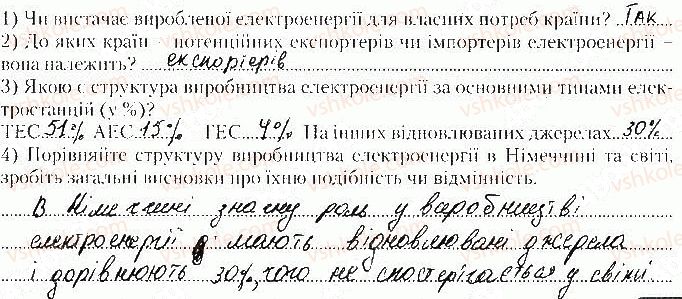 1) Чи вистачає виробленої електроенергії для власних потреб країни? Так
2) До яких країн – потенційних експортерів чи імпортерів електроенергії –
вона належить? експорієрів
3) Якою є структура виробництва електроенергії за основними типами елек-
тростанцій (у %)?
ТЕС 51% АЕС 15% ГЕС 4% На інших відновлюваних джерелах 30%
4) Порівняйте структуру виробництва електроенергії в Німеччині та світі,
зробіть загальні висновки про їхню подібність чи відмінність.
В Німеччині значну роль у варобництві
електроенергії мають відновлювані джерела
і дорівнюють 30%, чого не спостерігається у світі.